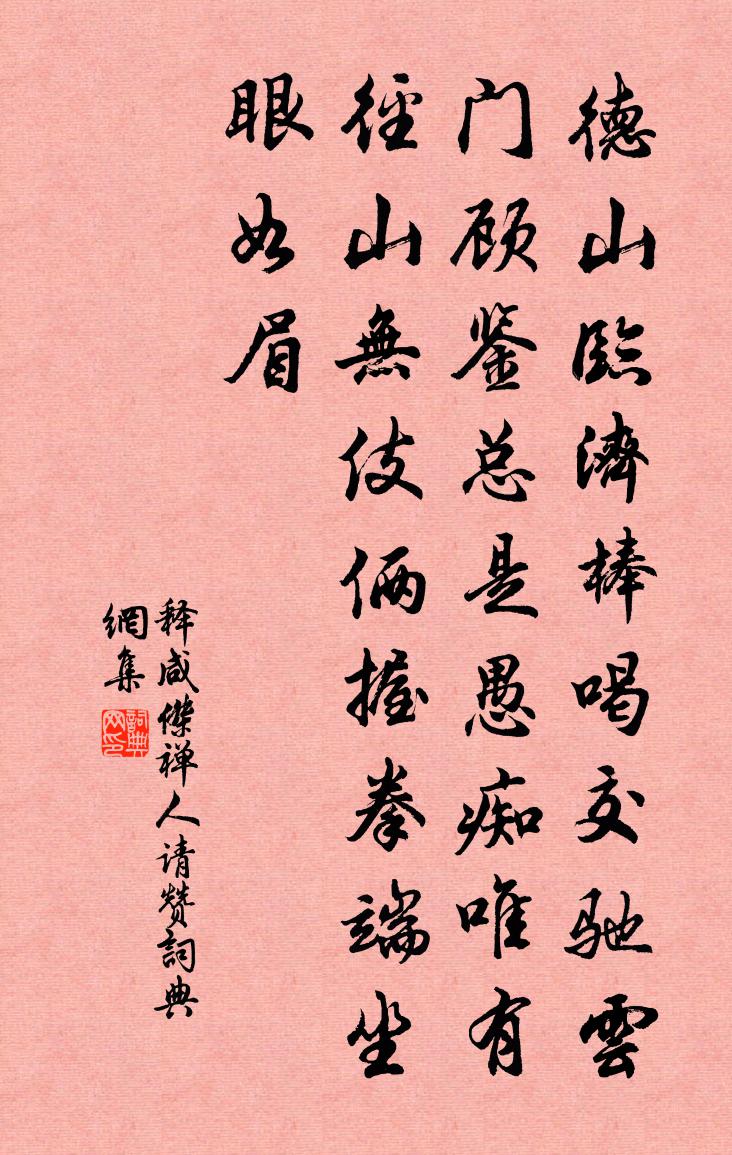 德山臨濟棒喝交驰雲
门顾鉴总是愚痴唯有
径山無伎俩握拳端坐
眼如眉
释咸傑禅人请赞詞典
網集
詞典
网印